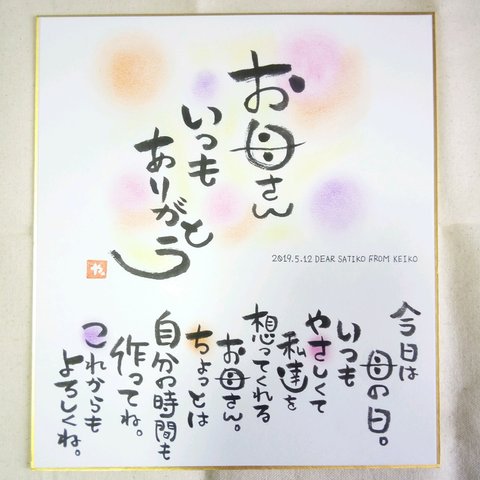 お母さん
いつも
ありがとう
2019.5.12 DEAR SATIKO FROM KEIKO
今日は
母の日。
いつも
やさしくて
私達を
想ってくれる
お母さん。
ちょっとは
自分の時間も
作ってね。
これからも
よろしくね。